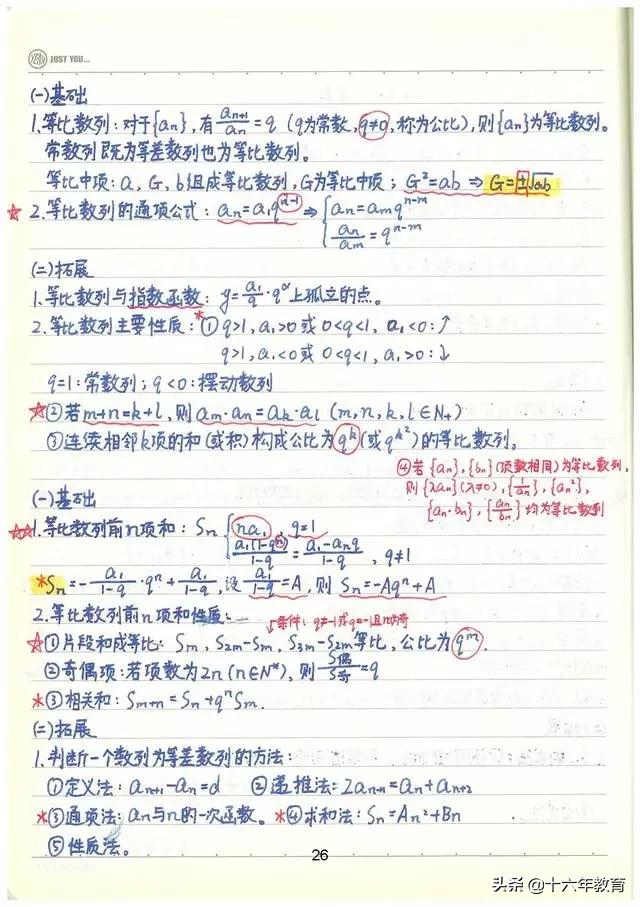 YEAH JUST YOU...
(一)基础
1.等比数列：对于{an}，有 an+1/an = q (q为常数，q≠0，称为公比)，则{an}为等比数列。
常数列既为等差数列也为等比数列。
等比中项：a, G, b组成等比数列，G为等比中项；G²=ab ⇒ G=±√ab
☆ 2.等比数列的通项公式：an=a1q^(n-1) ⇒ { an=amq^(n-m)
an/am = q^(n-m)
(二)拓展
1.等比数列与指数函数：y=a1/q·q^x 上孤立的点。
2.等比数列主要性质：*① q>1, a1>0 或 0<q<1, a1<0：↗
q>1, a1<0 或 0<q<1, a1>0：↘
q=1：常数列；q<0：摆动数列
☆②若m+n=k+l，则am·an=ak·al (m,n,k,l∈N+)
③连续相邻k项的和(或积)构成公比为q^k(或q^(k²))的等比数列。
④若{an},{bn}(项数相同)为等比数列，
则{λan}(λ≠0),{1/an},{an²},
{an·bn},{an/bn}均为等比数列
(一)基础
☆☆1.等比数列前n项和：Sn { na1, q=1
a1(1-q^n)/1-q = a1-anq/1-q , q≠1
*Sn=-a1/1-q·q^n+a1/1-q，设a1/1-q=A，则Sn=-Aq^n+A
2.等比数列前n项和性质：
条件：q≠-1或q=-1且m为奇
☆①片段和成等比：Sm, S2m-Sm, S3m-S2m等比，公比为q^m.
②奇偶项：若项数为2n(n∈N*)，则S偶/S奇=q
*③相关和：Sm+n=Sn+q^nSm.
(二)拓展
1.判断一个数列为等差数列的方法：
①定义法：an+1-an=d ②递推法：2an+1=an+an+2
*③通项法：an与n的一次函数。*④求和法：Sn=An²+Bn
⑤性质法。
26
头条@十六年教育